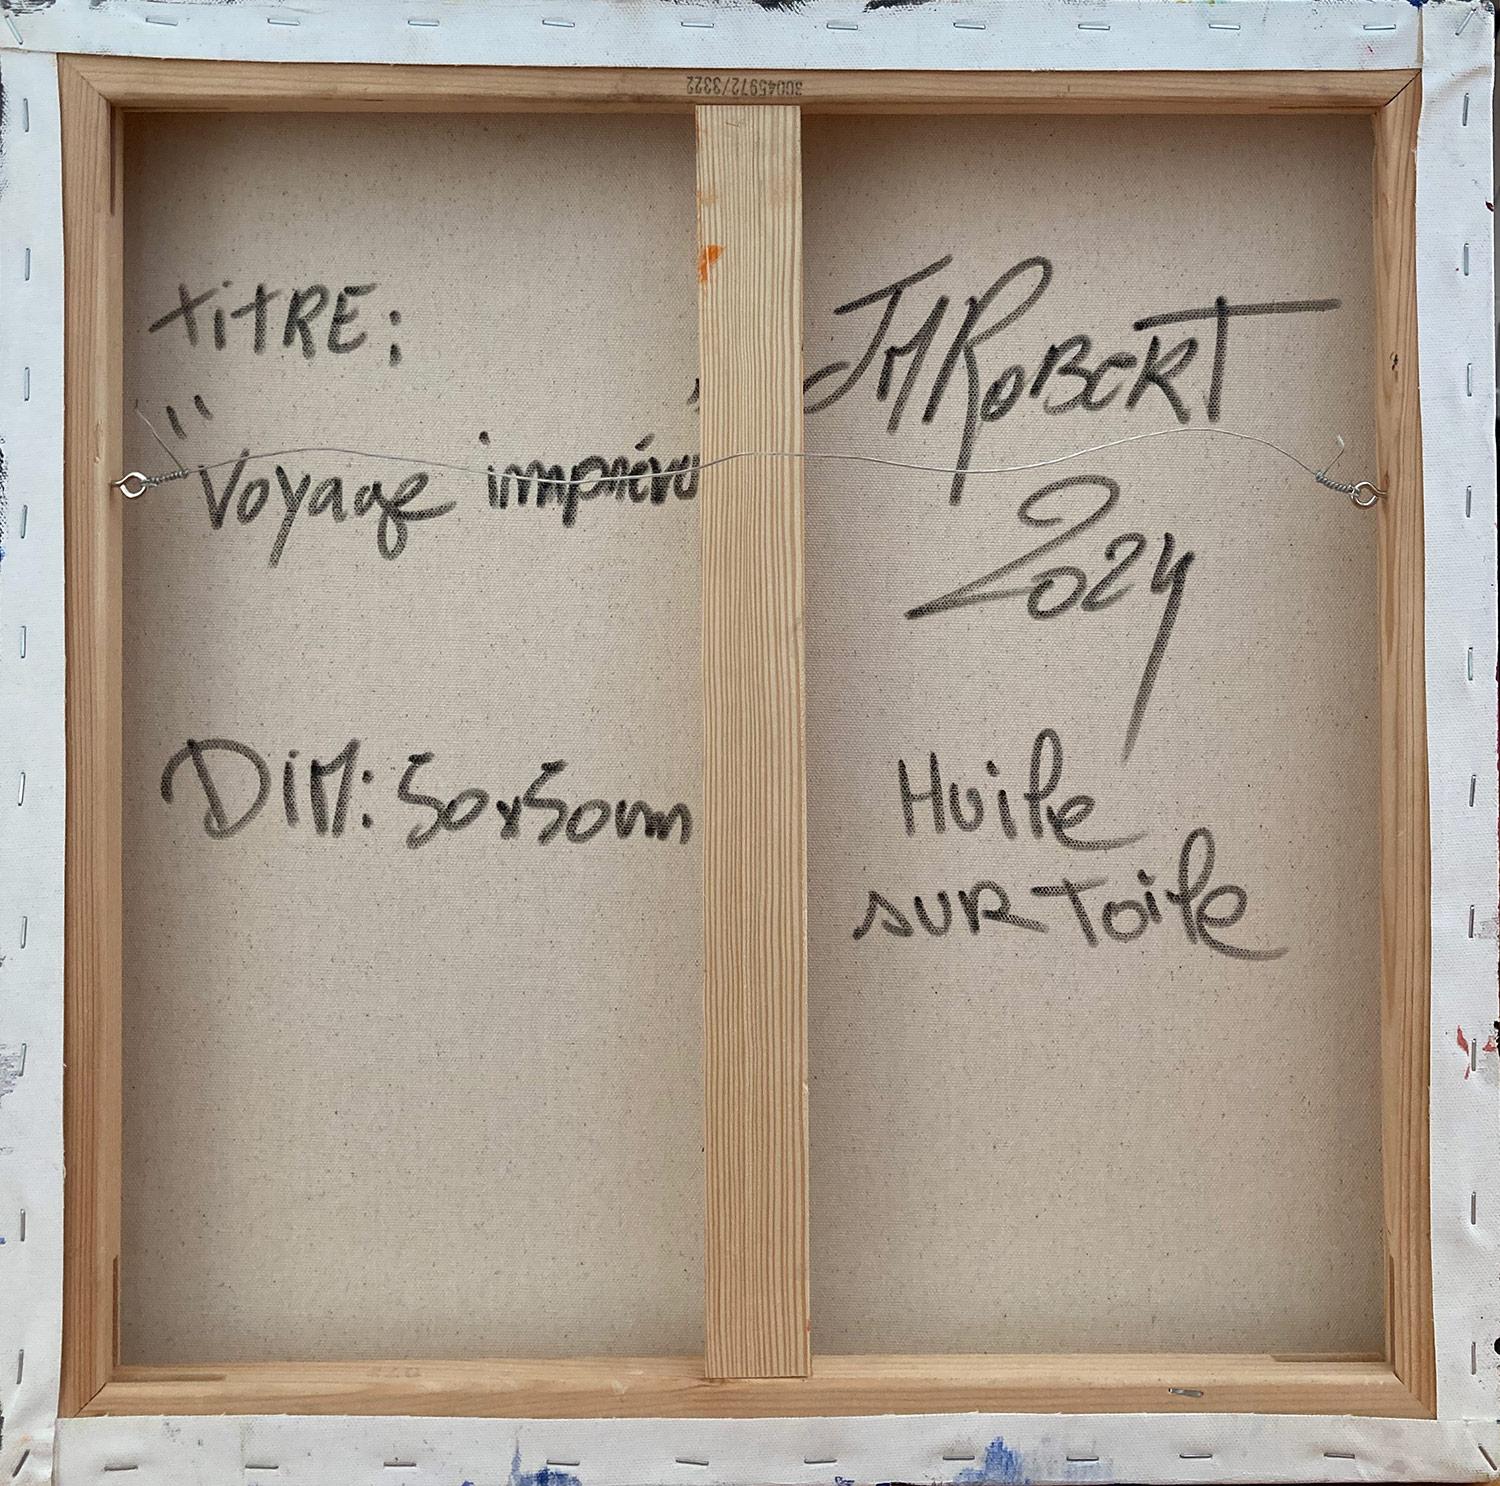 30045972/3322
titRE:
"Voyage imprévu
DiM: 50x50cm
JMRobERT
2024
Huile
suR Toile